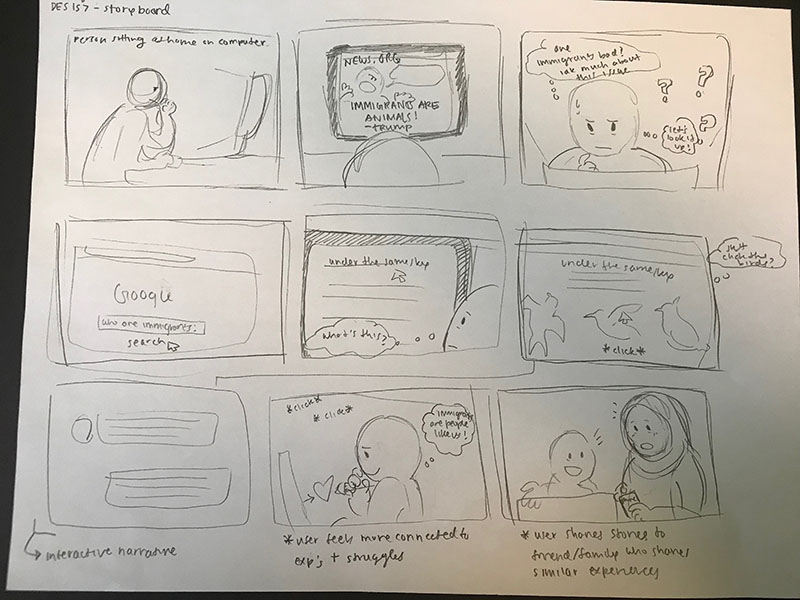 DES 157 - storyboard
Person sitting at home on computer.
NEWS.ORG
IMMIGRANTS ARE
ANIMALS!
-trump
are
immigrants bad?
idk much about
this issue
?
?
?
let's
look it
up!
Google
who are immigrants?
search
under the same sky
what's this?
under the same sky
*click*
just
click the
birds?
interactive narrative
*click*
*click*
immigrants
are people
like us!
*user feels more connected to
exp's + struggles
*user shares stories to
friend/family who shares
similar experiences